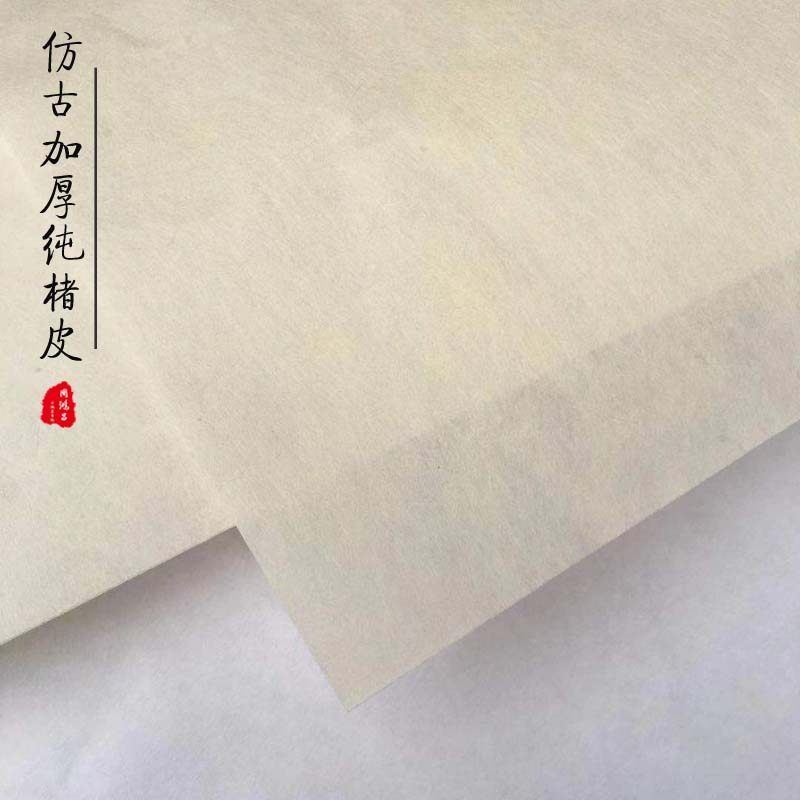 仿古加厚纯楮皮